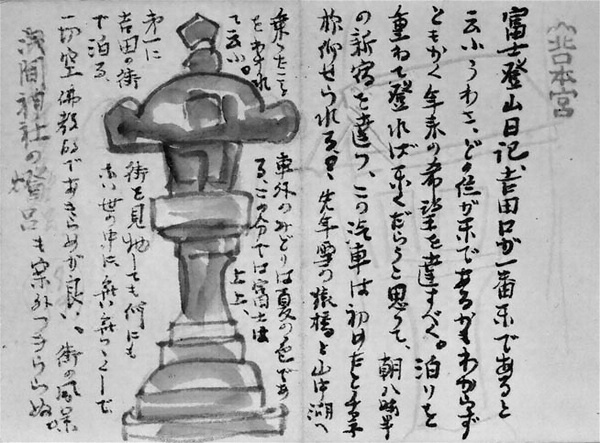 北口本宮
富士登山日記、吉田口が一番楽であると
云ふうわさ、どの位が楽であるかもわからず
ともかく年来の希望を達すべく。泊りを
重ねて登れば楽くだらうと思って、朝八時半
の新宿を達つ、この汽車は初めたと
先年雪の猿橋と山中湖へ
乗ったこと
をわすれ
て云ふ。
車外のみどりは夏の色であ
る、この分では富士は
上上、
第一に
吉田の街
で泊る、
街を見物しても何にも
ない世の中に、無い無いづくしで
一切空佛教的であきらめが良い、街の風景
も案外つきらぬ
浅間神社の燈呂